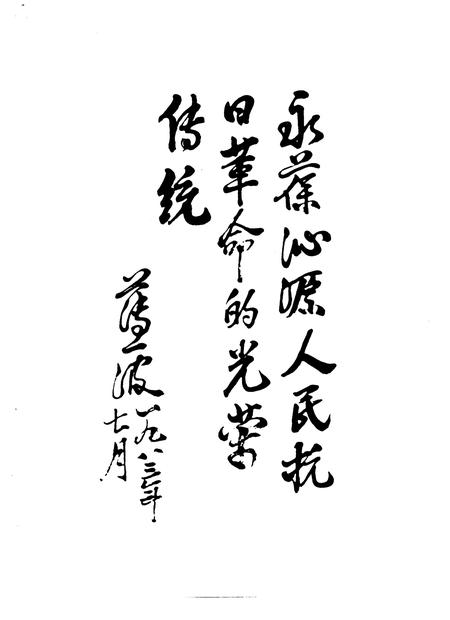 永葆沁源人民抗
日革命的光荣
传统
薄一波一九八三年
七月